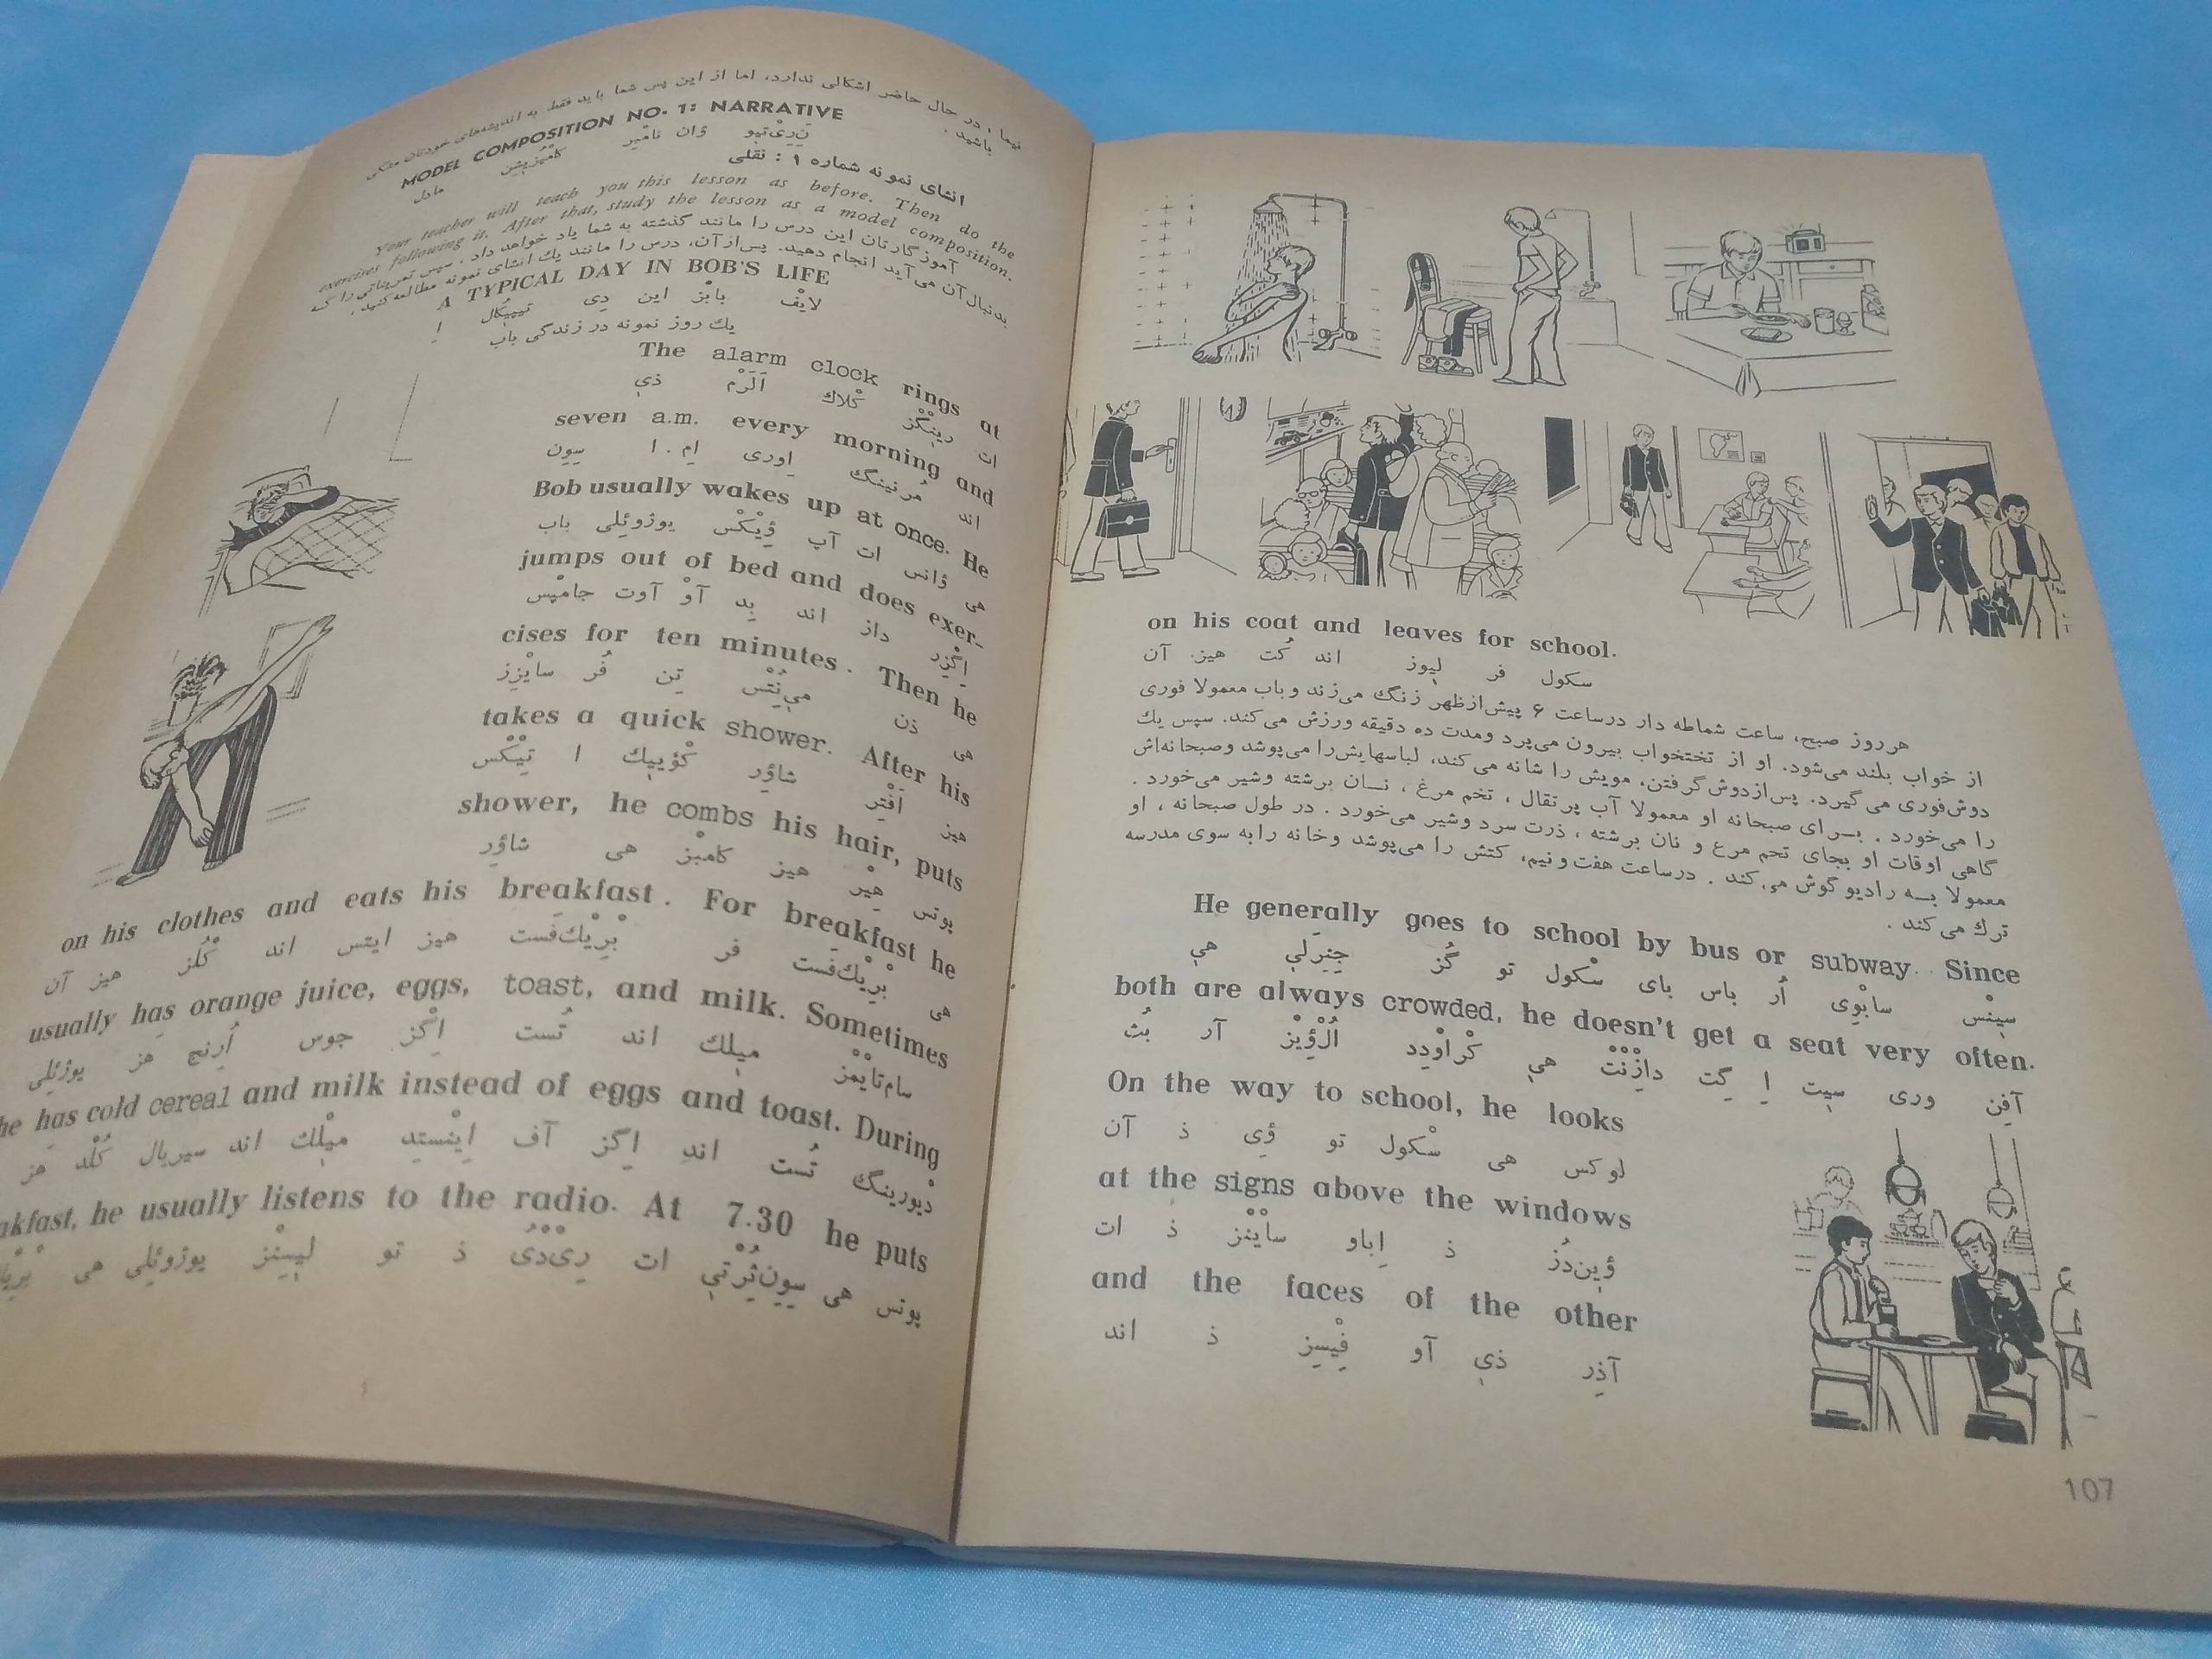 فیما، در حال حاضر اشکالی ندارد، اما از این پس شما باید فقط به اندیشه‌های خودتان متکی
باشید.
MODEL COMPOSITION NO. 1: NARRATIVE
نَرِیْتیو وْان نامْبِر کامْپُزیشِن مادل
انشای نمونه شماره ۱ : نقلی
Your teacher will teach you this lesson as before. Then do the
exercises following it. After that, study the lesson as a model composition.
آموزگارتان این درس را مانند گذشته به شما یاد خواهد داد. سپس تمریناتی را که
بدنبال آن می‌آید انجام دهید. پس‌از آن، درس را مانند یك انشای نمونه مطالعه کنید.
A TYPICAL DAY IN BOB'S LIFE
لایْف بابْز این دِی تیپیکال اِ
یك روز نمونه در زندگی باب
The alarm clock rings at
ات رینگْز کْلاك اَلَرْم ذي
seven a.m. every morning and
اند مُرنینگ اِوری اِم . ا سِوِن
Bob usually wakes up at once. He
هی وْانس ات آپ وِیْکْس یوژوئِلی باب
jumps out of bed and does exer-
اِکْزِر داز اند بِد آوْ آوت جامْپْس
cises for ten minutes. Then he
هی ذن می‌نُتْس تِن فُر سایْزِز
takes a quick shower. After his
هیز اَفْتِر شاوِر کْوییك ا تِیْکْس
shower, he combs his hair, puts
پوتس هِیْر هیز کامْبْز هی شاوِر
on his clothes and eats his breakfast. For breakfast he
هی بْرِیْك‌فَست فر بْرِیْك‌فَست هیز ایتس اند کْلُز هیز آن
usually has orange juice, eggs, toast, and milk. Sometimes
سام‌تایْمْز میلك اند تُست اِگْز جوس اُرِنج هَز یوژئِلی
he has cold cereal and milk instead of eggs and toast. During
دیورینگ تُست اند اِگز آف اینْستِد میلْك اند سیریال کُلْد هَز
akfast, he usually listens to the radio. At 7.30 he puts
پوتس هی سِوِن‌ثِرْتی ات رِیْ‌دْیُ ذ تو لیسِنْز یوژوئِلی هی
on his coat and leaves for school.
سکول فر لیوز اند کُت هیز آن
هر روز صبح، ساعت شماطه دار درساعت ۶ پیش‌ازظهر زنگ می‌زند و باب معمولا فوری
از خواب بلند می‌شود. او از تختخواب بیرون می‌پرد ومدت ده دقیقه ورزش می‌کند. سپس یك
دوش‌فوری می‌گیرد. پس‌ازدوش‌گرفتن، مویش را شانه می‌کند، لباسهایش‌را می‌پوشد وصبحانه‌اش
را می‌خورد . بـرای صبحانه او معمولا آب پرتقال ، تخم مرغ ، نـان برشته وشیر می‌خورد .
گاهی اوقات او بجای تخم مرغ و نان برشته ، ذرت سرد وشیر می‌خورد . در طول صبحانه ، او
معمولا بـه رادیو گوش می‌کند . درساعت هفت‌ونیم، کتش را می‌پوشد وخانه را به سوی مدرسه
ترك می‌کند .
He generally goes to school by bus or subway. Since
سینْس سابْوِی اُر باس بای سْکول تو گُز جِنِرَلي هي
both are always crowded, he doesn't get a seat very often.
آفِن وری سیت اِ گِت دازِنْت هی کْراوْدِد اُلْوِیْز آر بُث
On the way to school, he looks
لو کس هی سْکول تو وِی ذ آن
at the signs above the windows
وین‌دُز ذ اِباو سایْنْز ذ ات
and the faces of the other
آذِر ذي آو فِیْسِز ذ اند
107